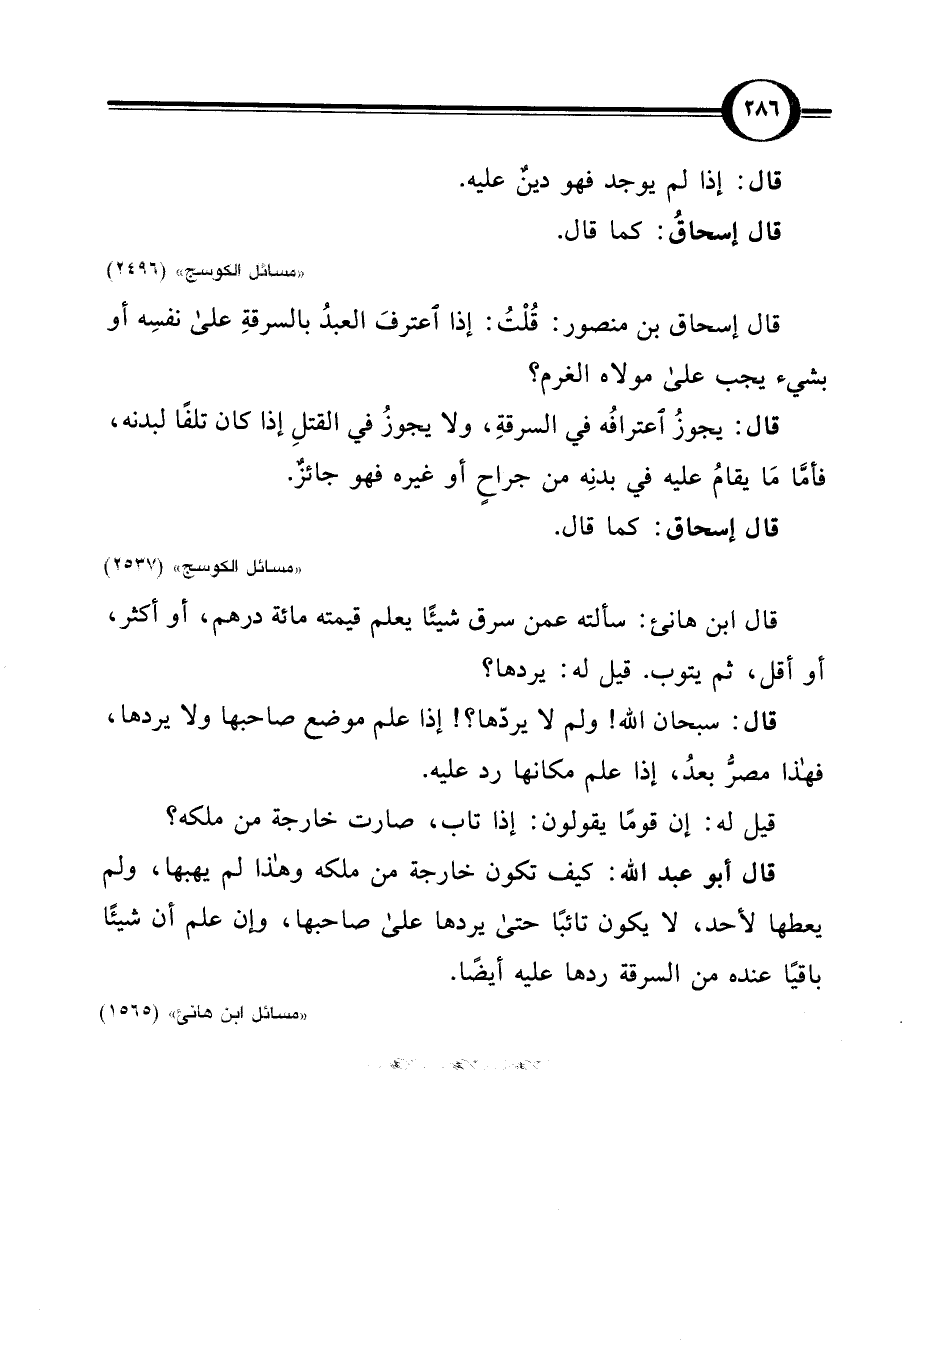 ٢٨٦
قال: إذا لم يوجد فهو دينٌ عليه.
قال إسحاقُ: كما قال.
«مسائل الكوسج» (٢٤٩٦)
قال إسحاق بن منصور: قُلْتُ: إذا ٱعترفَ العبدُ بالسرقةِ علىٰ نفسِه أو
بشيء يجب علىٰ مولاه الغرم؟
قال: يجوزُ ٱعترافُه في السرقةِ، ولا يجوزُ في القتلِ إذا كان تلفًا لبدنه،
فأمَّا مَا يقامُ عليه في بدنِه من جراحٍ أو غيره فهو جائزٌ.
قال إسحاق: كما قال.
«مسائل الكوسج» (٢٥٣٧)
قال ابن هانئ: سألته عمن سرق شيئًا يعلم قيمته مائة درهم، أو أكثر،
أو أقل، ثم يتوب. قيل له: يردها؟
قال: سبحان الله! ولم لا يردّها؟! إذا علم موضع صاحبها ولا يردها،
فهٰذا مصرٌّ بعدُ، إذا علم مكانها رد عليه.
قيل له: إن قومًا يقولون: إذا تاب، صارت خارجة من ملكه؟
قال أبو عبد الله: كيف تكون خارجة من ملكه وهٰذا لم يهبها، ولم
يعطها لأحد، لا يكون تائبًا حتىٰ يردها علىٰ صاحبها، وإن علم أن شيئًا
باقيًا عنده من السرقة ردها عليه أيضًا.
«مسائل ابن هانئ» (١٥٦٥)